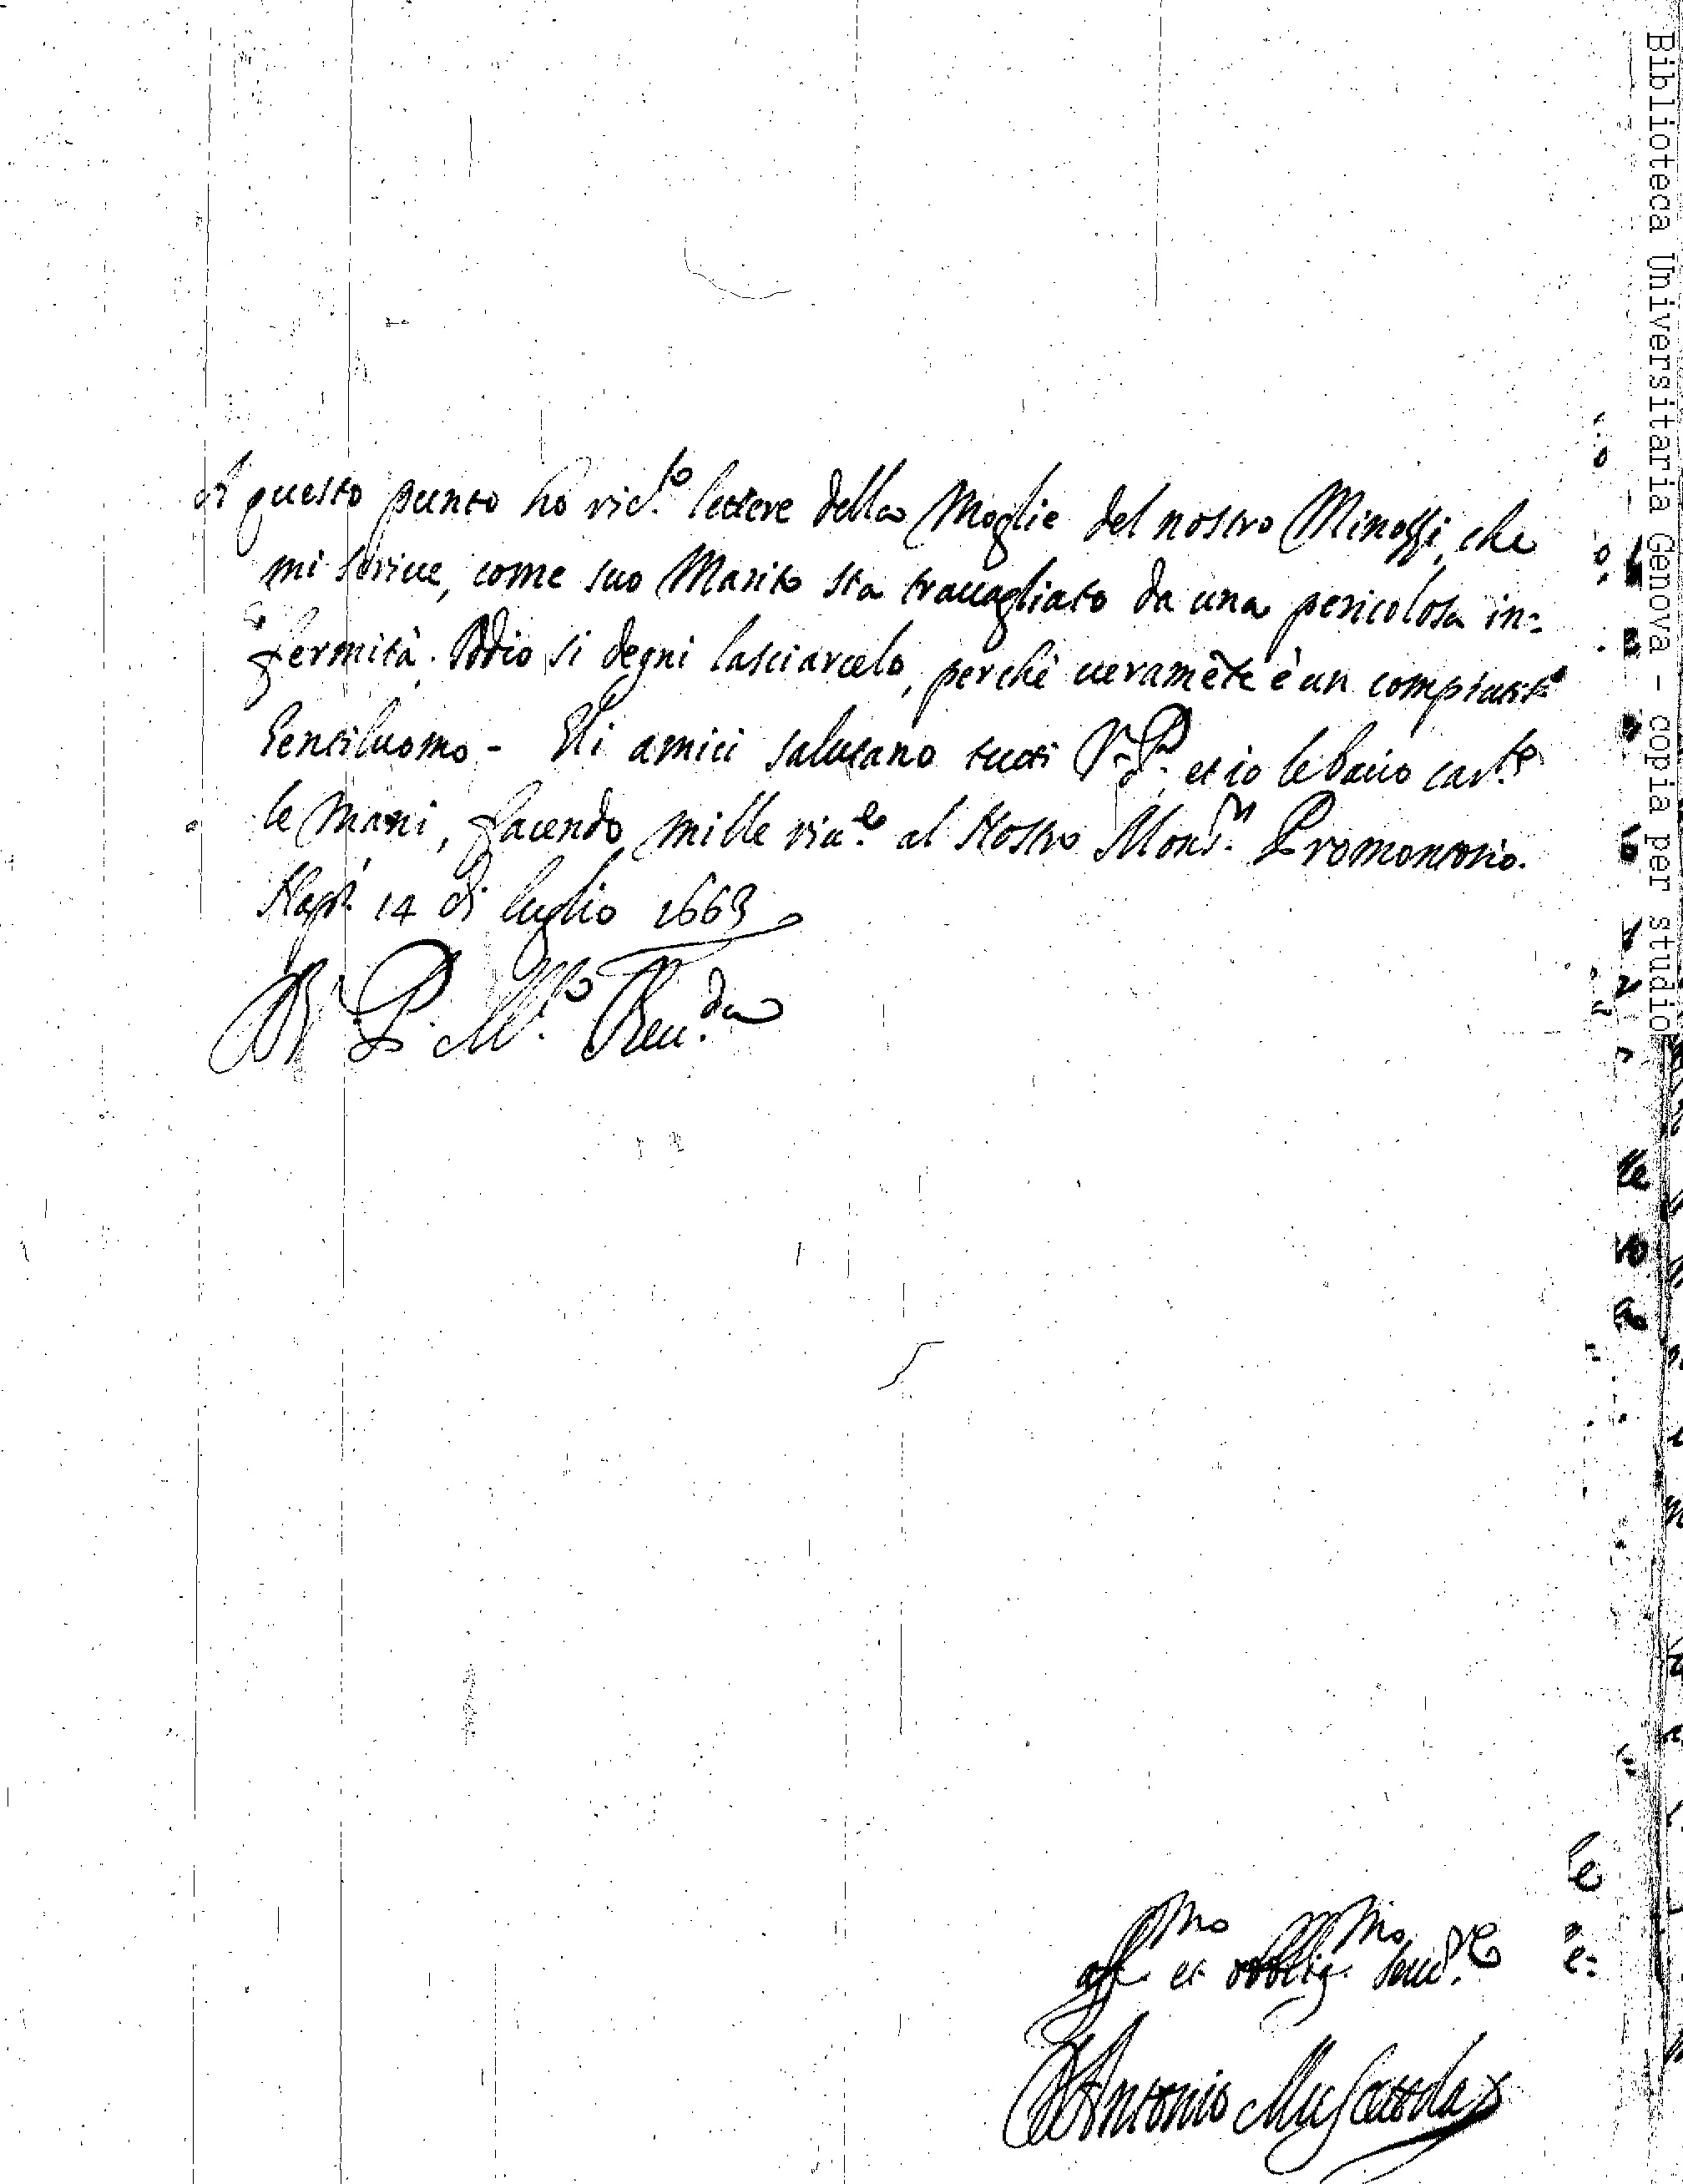 A questo punto ho ric.to lettere della Moglie del nostro Minossi, che
mi scriue, come suo Marito sta trauagliato da una pericolosa in=
fermità. Iddio si degni lasciarcelo, perchè ueramẽte è un compiuto
Gentiluomo - Gli amici salutano tutti V. P. et io le bacio car.te
le mani, facendo mille riu.e al Nostro Mons.r Promontorio.
Nap. 14 di luglio 1663
Di V. P. M.to Reu.da
aff.mo et obblig.mo seru.re
Antonio Muscettola
Biblioteca Universitaria Genova - copia per studio